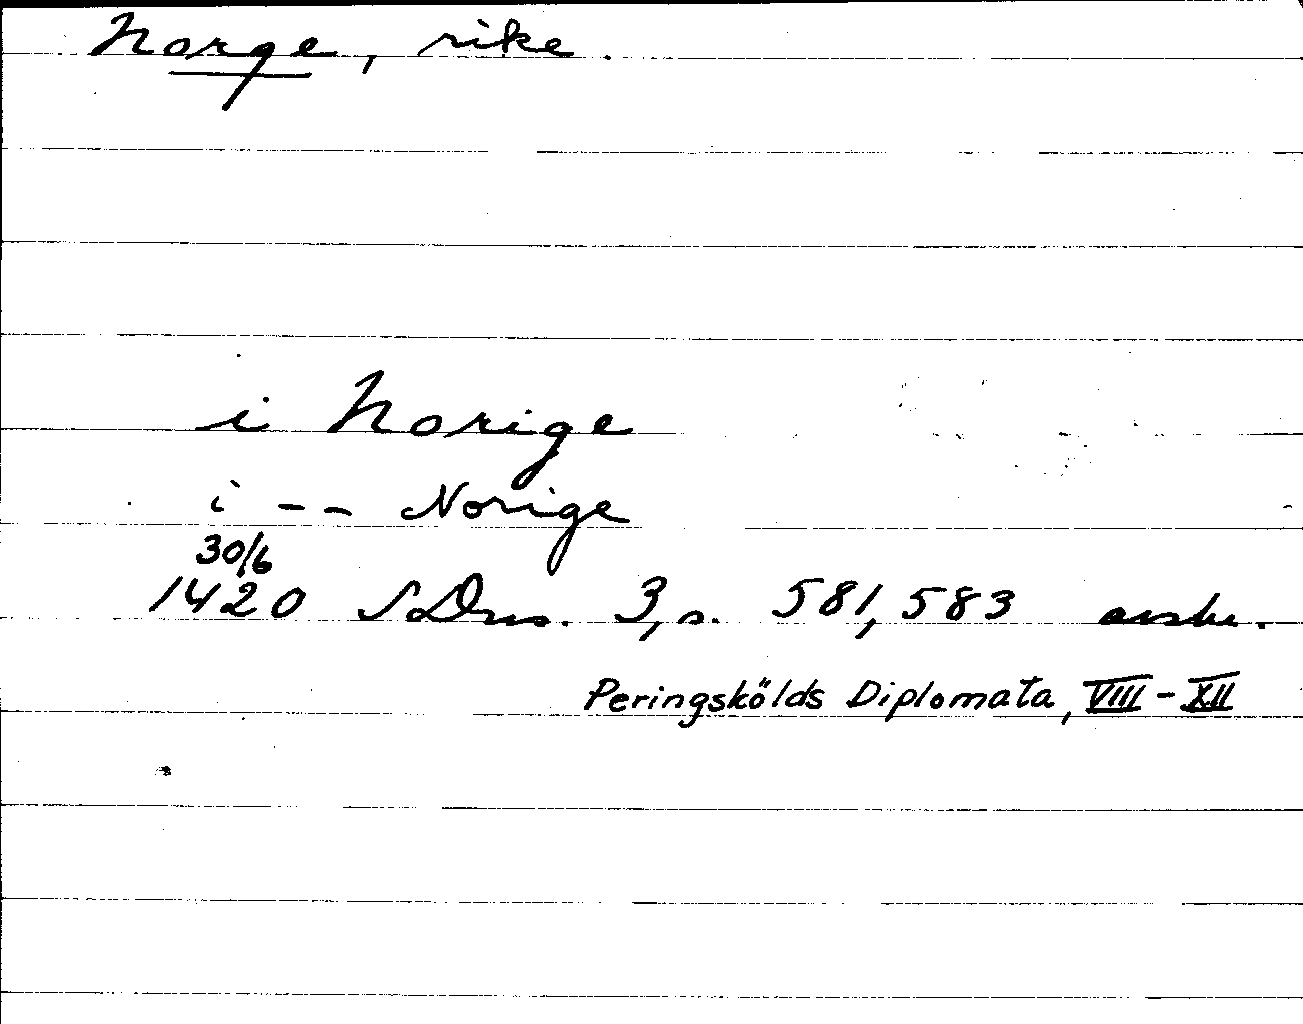 Norge, rike.
i Norige
i -- Norige
30/6
1420 SDns. 3, s. 581, 583 avskr.
Peringskölds Diplomata, VIII-XII